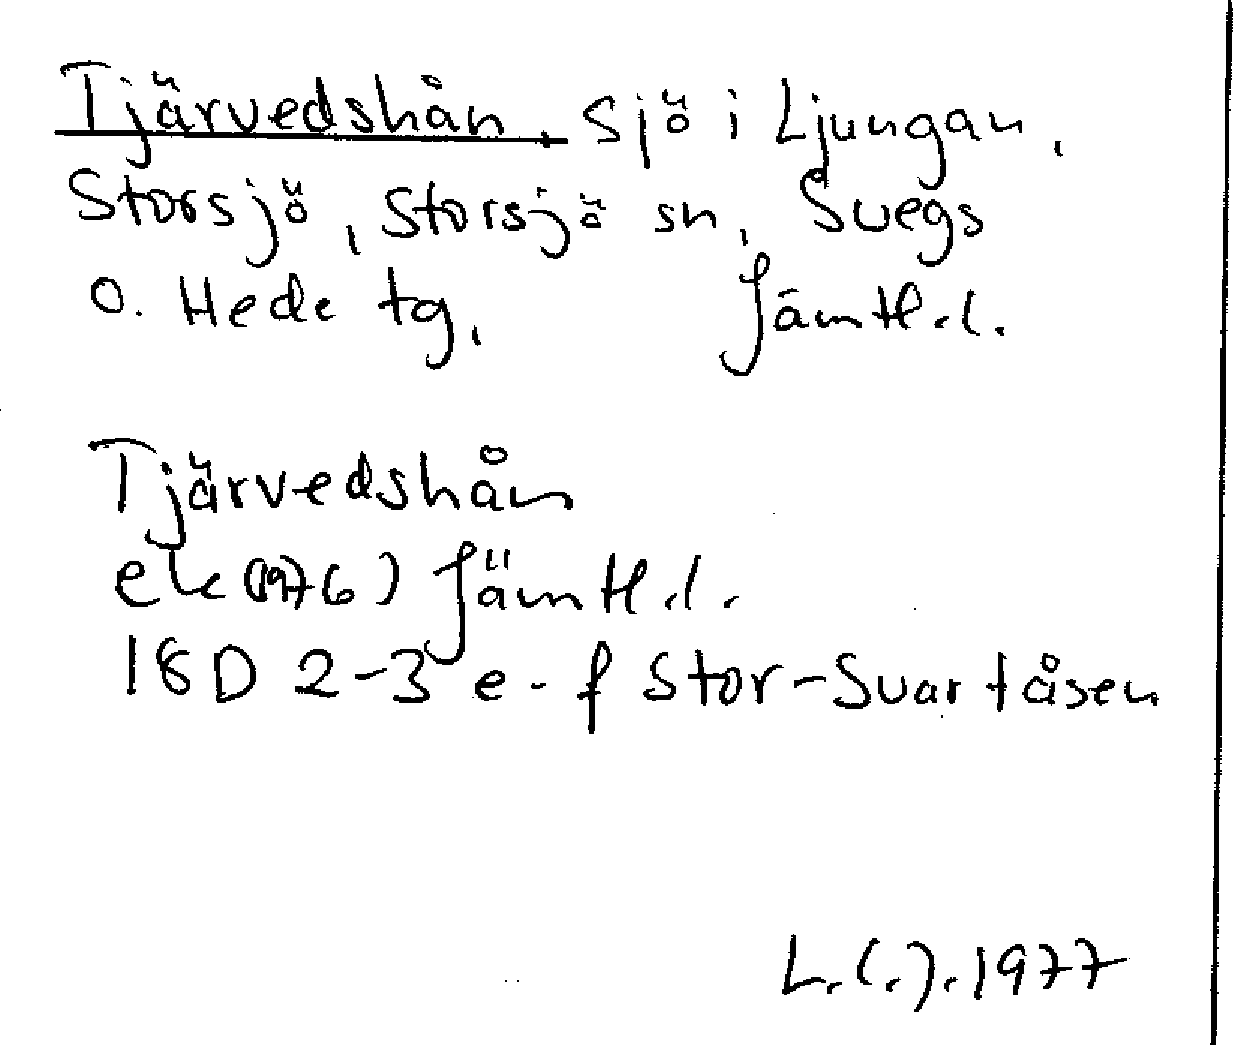 Tjärvedshån, sjö i Ljungan,
Storsjö, Storsjö sn, Svegs
o. Hede tg, Jämtl.l.
Tjärvedshån
ek(1976) Jämtl.l.
18D 2-3 e-f Stor-Svartåsen
L.(.).1977